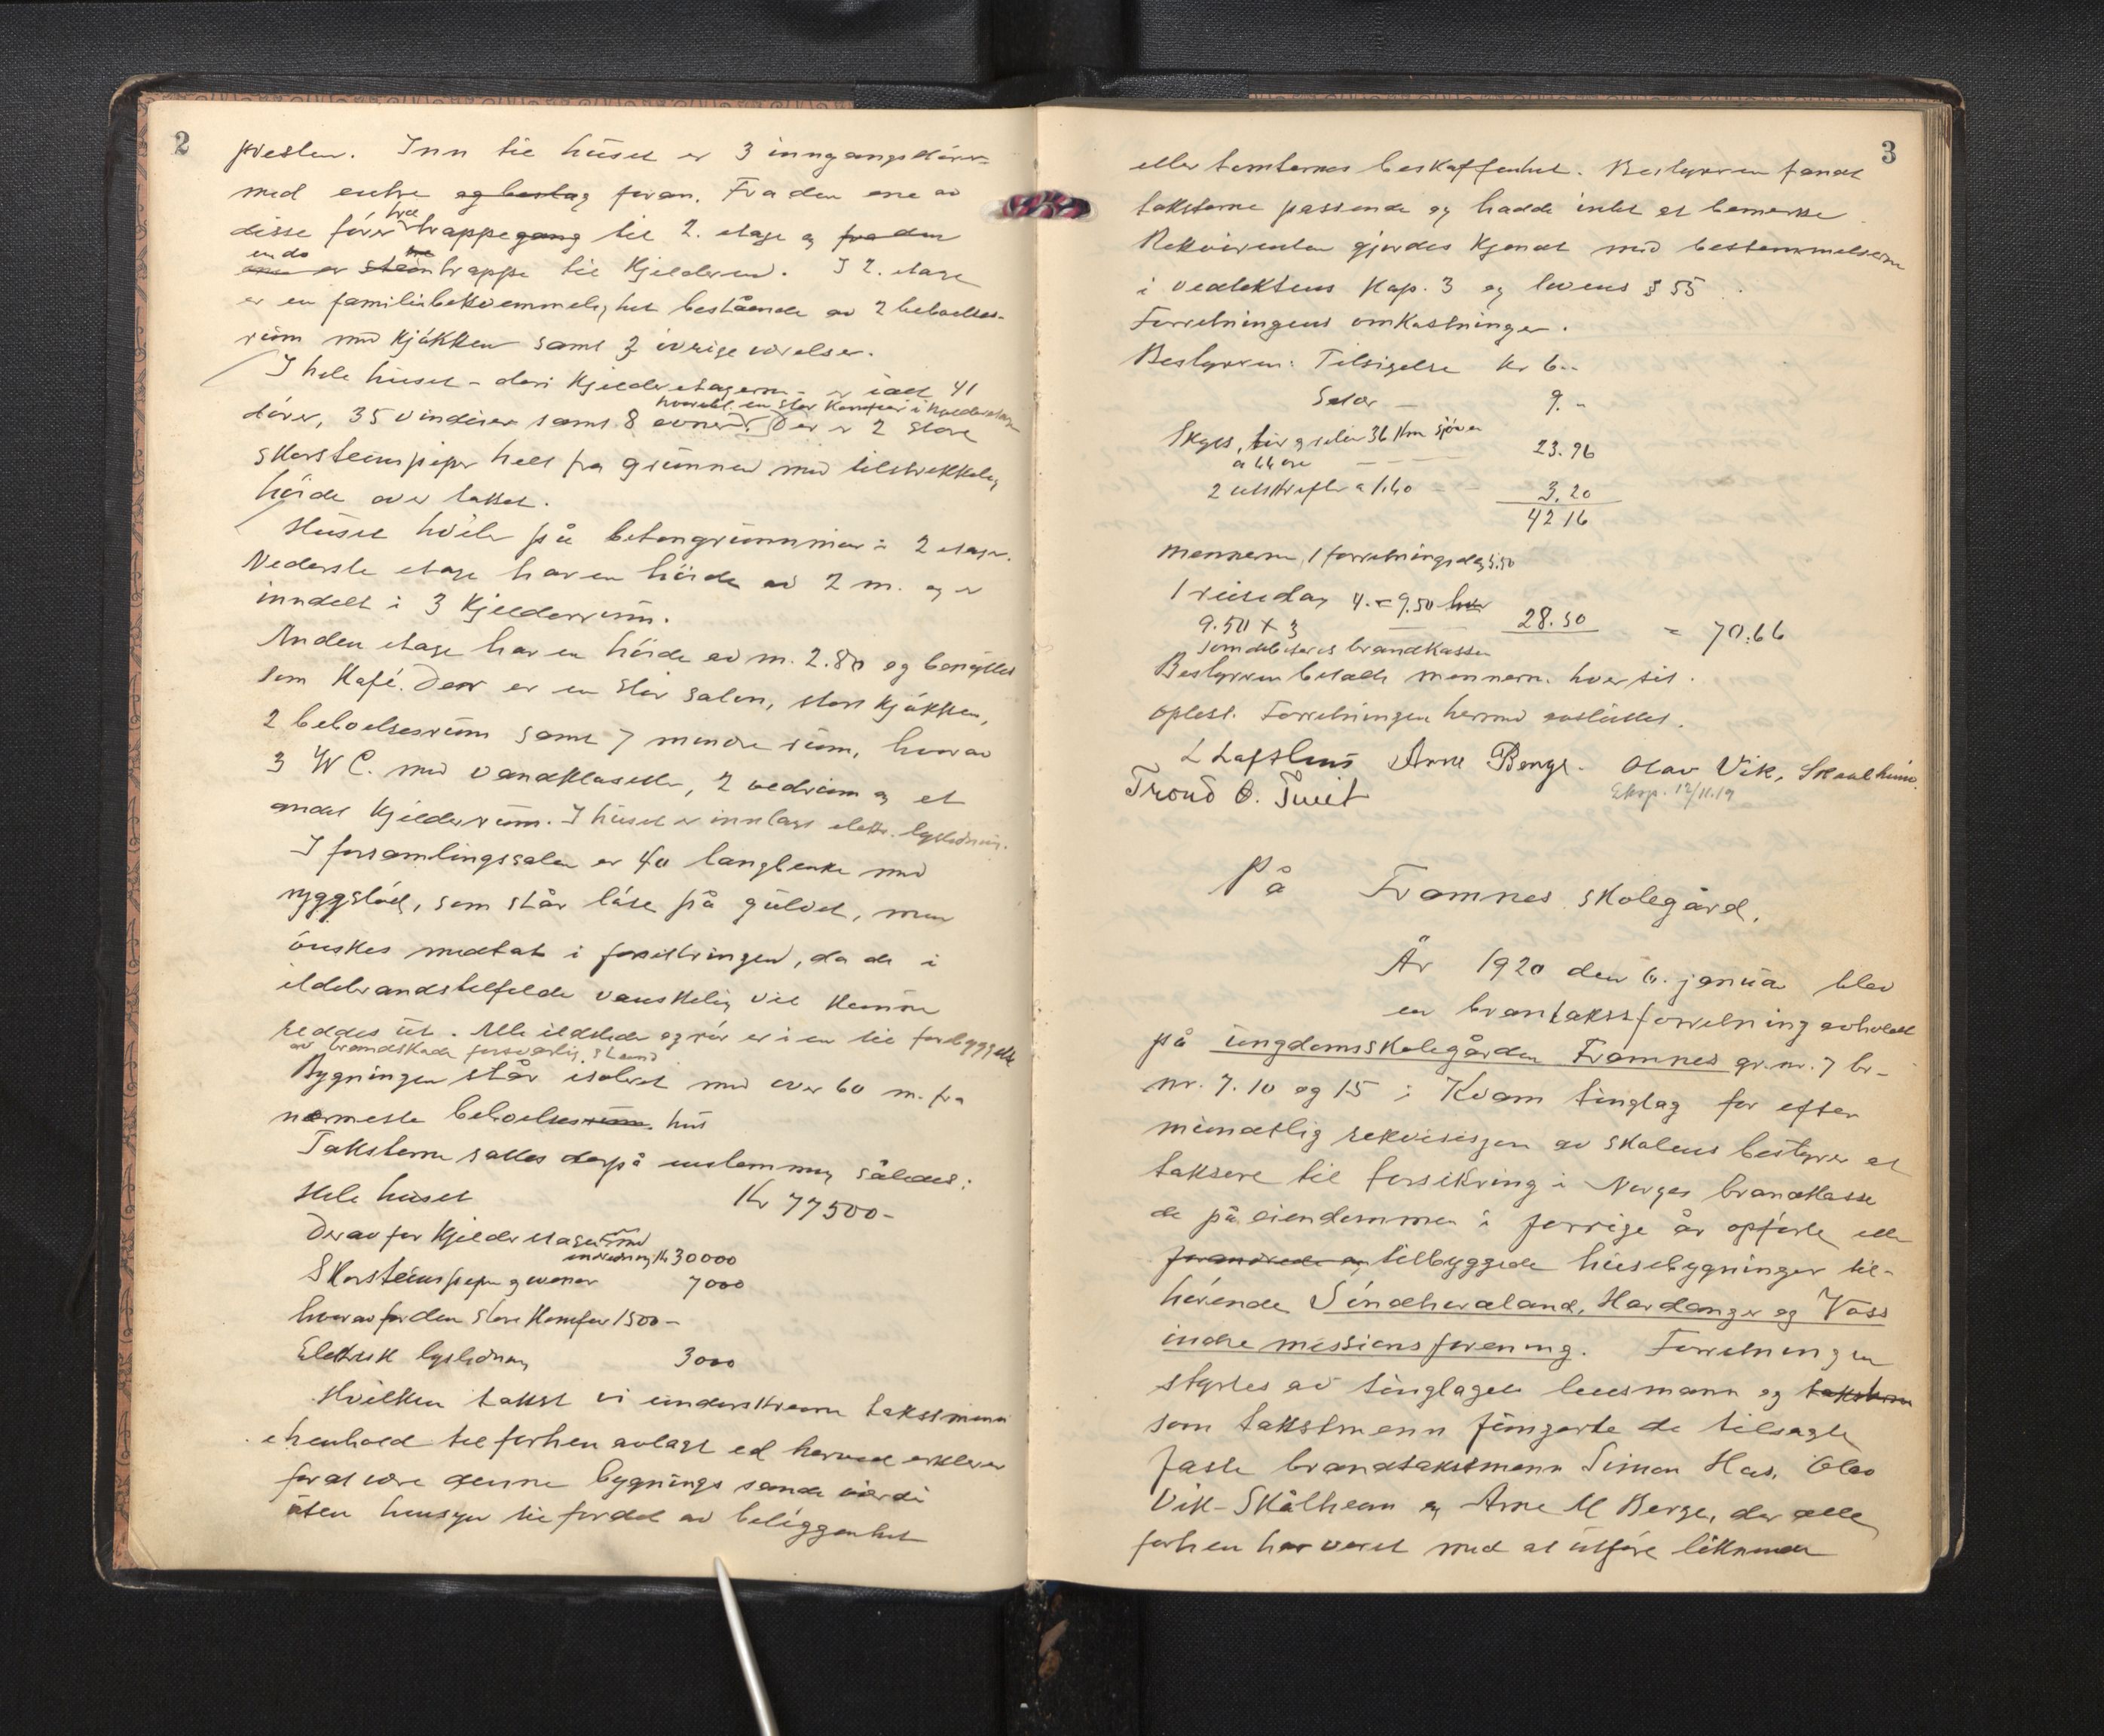 2
Inn til huset er 3 inngangsdörer
med entre og beslag foran. Fra den ene av
disse förer tre trappegang til 2. etage og fra den
ene er stein trappe til kjelderen. I 2. etage
er en familiebekvemmelighet bestående av 2 beboelses-
rum med kjökken samt 3 övrige værelser.
I hele huset - deri kjelderetagerne - er ialt 41
hvoriblt. en stor komfur i kjelderetagen
dörer, 35 vinduer samt 8 ovner. Der er 2 store
skorsteinspiper helt fra grunnen med tilstrekkelig
höide over taket.
Huset hviler på betongrunnmur i 2 etager.
Nederste etage har en höide av 2 m. og er
inndelt i 3 kjelderrum.
Anden etage har en höide av m. 2.80 og benyttes
som Kafé. Der er en stor salon, stort kjökken,
2 beboelsesrum samt 7 mindre rum, hvorav
3 W C. med vandklosetter, 2 vedrum og et
andet kjelderrum. I huset er innlagt elektr. lysledning.
I forsamlingssalen er 40 langbenke med
ryggstöd, som står löse på gulvet, men
önskes medtat i forsikringen, da de i
ildebrandstilfelde vanskelig vil kunne
reddes ut. Alle ildsteder og rör er i en til forebyggelse
av brandskade forsvarlig stand
Bygningen står isolert med over 60 m. fra
nærmeste beboelsesrum hus
Taksterne sattes derpå enstemmig således:
Hele huset Kr 77500-
Derav for kjelderetagen med
innredning kr 30000
Skorsteinspiper og ovner 7000
hvorav for den store Komfur 1500-
Elektrisk lysledning 3000
Hvilken takst vi underskrevne takstmenn
i henhold til forhen avlagt ed herved erklærer
for at være denne bygnings sande værdi
uten hensyn til fordel av beliggenhet
3
eller tomternes beskaffenhet. Bestyreren fandt
taksterne passende og hadde intet at bemerke
Rekvirenten gjordes kjendt med bestemmelserne
i vedtektens Kap. 3 og lovens § 55
Forretningens omkostninger.
Bestyreren: Tilsigelse Kr 6--
Salær 9.-
Skyss, tur og retur 36 Km sjöveien
a 66 öre 23.96
2 utskrifter a 1.60 3.20
42 16
Mennerne, 1 forretningsdag 5.50
1 reisedag 4.- = 9.50 hver
9.50 x 3 28.50 = 70.66
som debiteres brandkassen
Bestyreren betalte mennerne hver sit.
Oplest. Forretningen hermed avsluttet.
Arne Berge. Olav Vik, Skaalheim.
Trond O. Tveit Eksp. 12/11.19
På Framnes skolegård.
År 1920 den 6. januar blev
en brantakstforretning avholdt
på ungdomsskolegården Framnes gr. nr. 7 br-
nr. 7. 10 og 15 i Kvam tinglag for efter
mundtlig rekvisisjon av skolens bestyrer at
taksere til forsikring i Norges brandkasse
de på eiendommen i forrige år opförte eller
forandrede og tilbyggede husebygninger til-
hörende Söndhordland, Hardanger og Voss
indre missionsforening. Forretningen
styrtes av tinglagets lensmann og taksterne
som takstmenn fungerte de tilsagte
faste brandtakstmenn Simon Hus, Olav
Vik-Skålheim og Arne M Berge, der alle
forhen har været med at utföre liknende